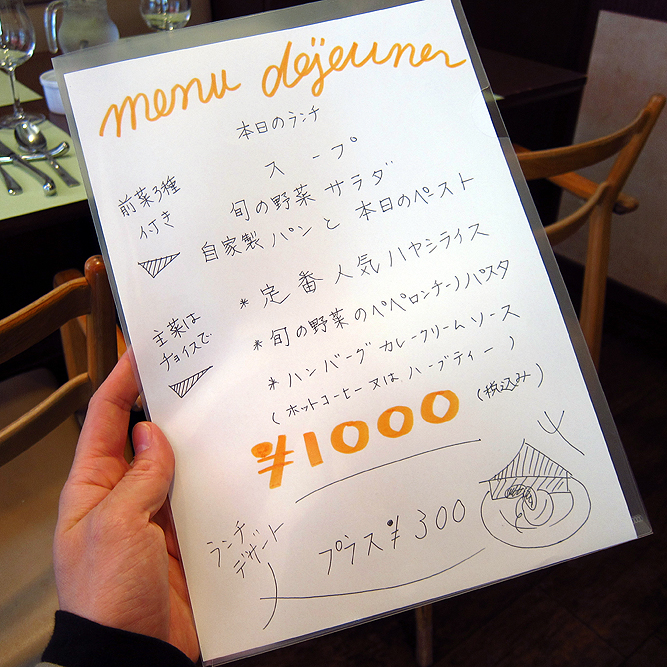 menu déjeuner
本日のランチ
前菜3種
付き
スープ
旬の野菜サラダ
自家製パンと本日のペースト
主菜は
チョイスで
*定番人気ハヤシライス
*旬の野菜のペペロンチーノパスタ
*ハンバーグカレークリームソース
(ホットコーヒー又はハーブティー)
¥1000 (税込み)
ランチ
デザート
プラス¥300